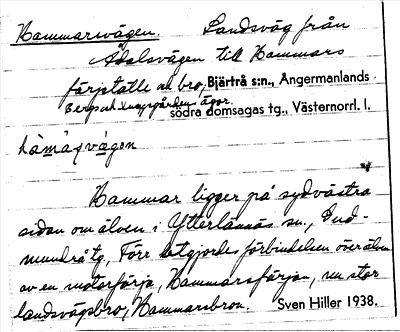 Hammarsvägen. Landsväg från
Ådalsvägen till Hammars
färjställe och bro, Bjärtrå s:n., Ångermanlands
Bergs och Knappgårdens ägor.
södra domsagas tg., Västernorrl. l.
Hammar ligger på sydvästra
sidan om älven i Ytterlännäs sn.,
tg., Förr utgjordes förbindelsen över älven
av en motorfärja, Hammarsfärjan, nu stor
landsvägsbro, Hammarsbron. Sven Hiller 1938.